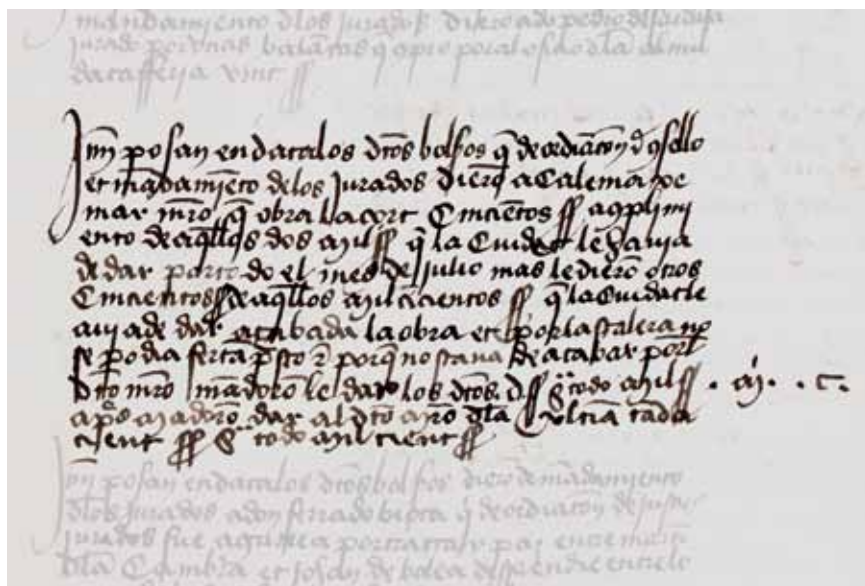 mandamiento dlos jurados diero a do pedro
jurado por unas balanças q opro por al ofiçio dla almu
daçafferia vint ss
Itm posan en data los dtos bolsos q de ordinaton d qsello
et madamieto de los jurados diero a Calema pe
mar mro q obra la cort Cincientos ss a qplimi
ento de aqllos dos mil ss q la Ciudat le havia
de dar por todo el mes de julio mas le diero otros
Cincientos ss de aqllos mil cientos ss q la Ciudat le
avia de dar acabada la obra et por la scalera no
se podia fer ta psto et porq no stava de acabar por l
dto mro madoro le dar los dtos d ss S todo mil ss . m . . c .
aps madoro dar al dto mro dla ultia tada
cient ss S todo mil cient ss
Itm posan en data los dtos bolsos diero de madamiento
dlos jurados a don ferrado q de ordinaton de
jurados fue a por tractar paz entre
dla Cambra et johan de bolea